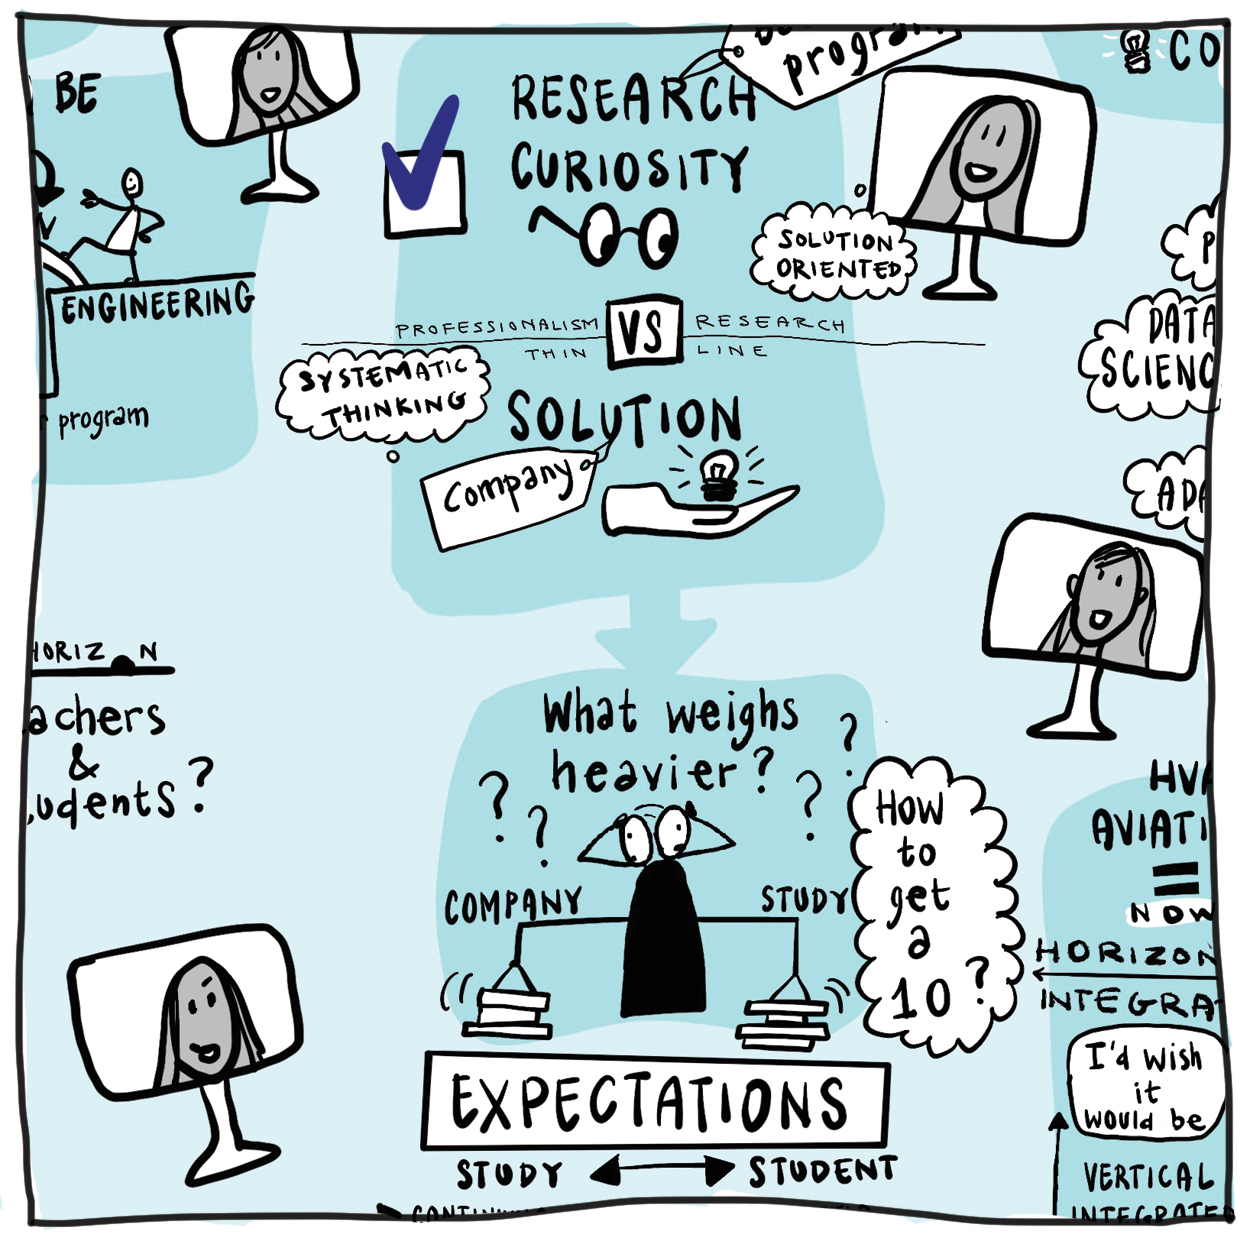 BE
ENGINEERING
program
program
RESEARCH
CURIOSITY
SOLUTION
ORIENTED
PROFESSIONALISM VS RESEARCH
THIN LINE
SYSTEMATIC
THINKING
SOLUTION
Company
CO
DATA
SCIENC
ADA
HORIZ N
achers
&
udents?
What weighs
heavier?
? ? ? ?
COMPANY STUDY
HOW
to
get
a
10?
EXPECTATIONS
STUDY STUDENT
HVA
AVIATI
=
NOW
HORIZON
INTEGRA
I'd wish
it
would be
VERTICAL
INTEGRATED